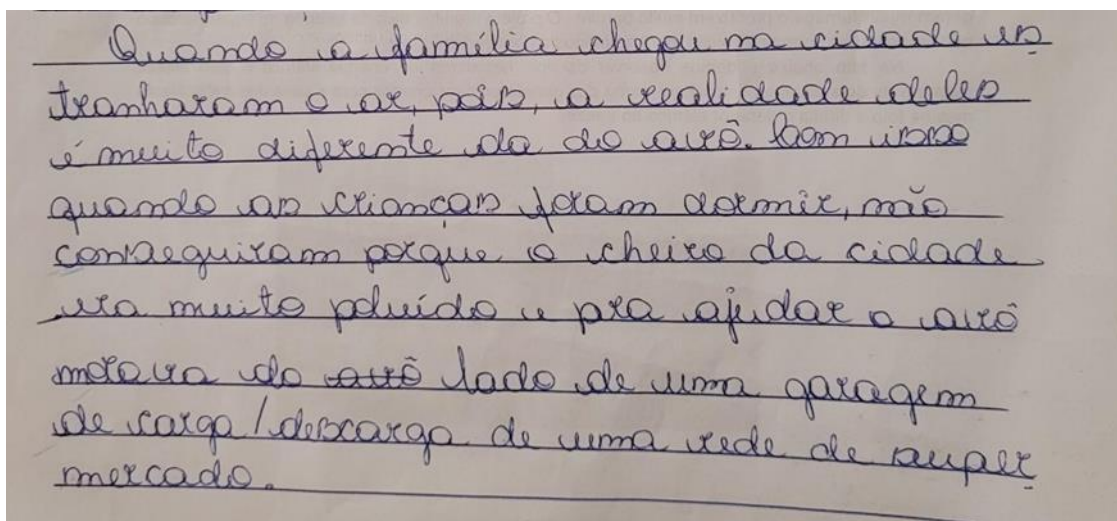 Quando a família chegou na cidade es
tranharam o ar, pois, a realidade deles
é muito diferente da do avô. Com isso
quando as crianças foram dormir, não
conseguiram porque o cheiro da cidade
era muito poluído e pra ajudar o avô
morava do avô lado de uma garagem
de carga/descarga de uma rede de super
mercado.